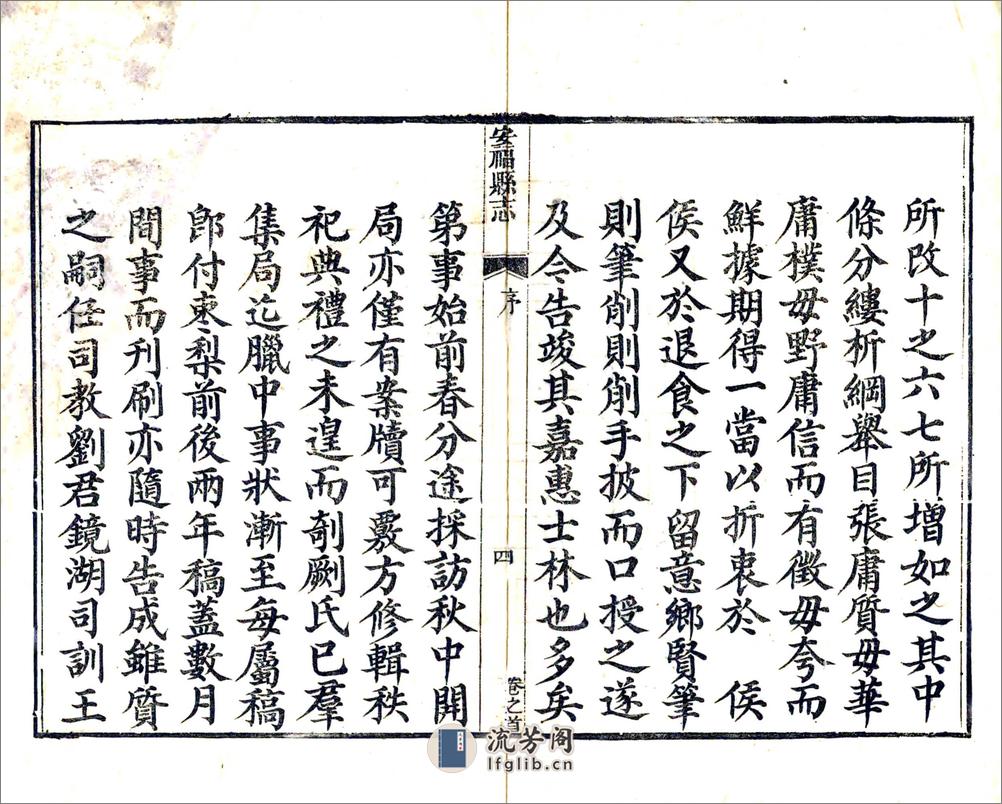 所改十之六七所增如之其中
條分縷析綱舉目張庸質毋華
庸樸毋野庸信而有徵毋夸而
鮮據期得一當以折衷於　侯
侯又於退食之下留意鄉賢筆
則筆削則削手披而口授之遂
及今告竣其嘉惠士林也多矣
安福縣志
序
四
卷之首
第事始前春分途採訪秋中開
局亦僅有案牘可覈方修輯秩
祀典禮之未遑而剞劂氏已羣
集局迄臘中事狀漸至每屬稿
卽付棗梨前後兩年稿蓋數月
間事而刊刷亦隨時告成雖質
之嗣任司教劉君鏡湖司訓王
流芳阁
lfglib.cn